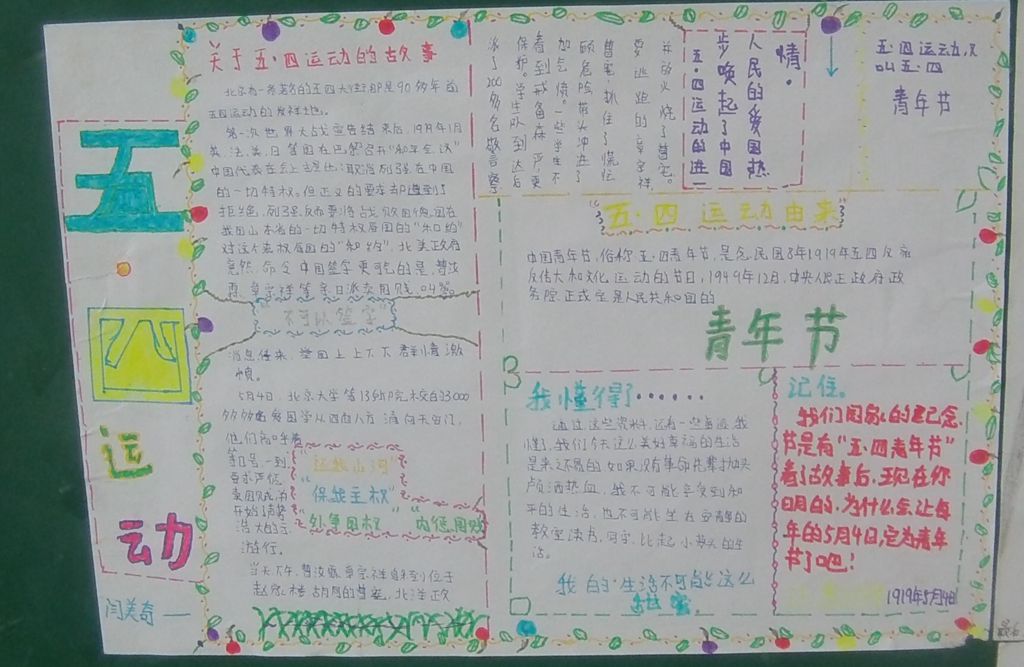 五
四
运
动
闫美奇
关于五·四运动的故事
北京有一条著名的五四大街那是90多年前
五四运动的发祥地。
第一次世界大战宣告结束后,19月年1月
英、法、美、日等国在巴黎召开"和平会议"
中国代表在会上
的一切特权,但正义的要求却遭到了
拒绝,列强反而要将战败国德国在
我国山东省的一切特权
对这丧权辱国的"和约",北美政府
竟然命令中国签字更可气的是,曹汝
章宗祥等亲日派卖国贼
"不可以签字"
消息传来,举国上上下下群情激
愤。
5月4日,北京大学等13所院校的3000
多多爱国学从四面八方涌向天安门,
他们高呼着
"还我山河"
"保我主权"
"外争国权" "内惩国贼"
开始了声势
浩大的示
游行。
当天下午,曹汝霖章宗祥躲到位于
赵家楼胡同的曹家,北洋政
派了200多名警察
保护。学生队到达后
看到戒备森严,更
加气愤。一些学生不
顾危险带头冲进了
曹宅抓住了慌忙
要逃跑的章宗祥
并放火烧了曹宅。
五·四运动的进一
步唤起了中国
人民的爱国热
情。
五·四运动,又
叫五·四
青年节
"五·四运动由来"
中国青年节,俗称五·四青年节,是念民国8年1919年五四反帝
反伟大和文化运动的节日,1949年12月,中央人民正政府政
务院正式定是人民共和国的
青年节
我懂得了······
通过这些资料,还有一些查阅,我
懂,我们今天这么美好幸福的生活
是来之不易的如果没有革命先辈抛头
颅洒热血,我不可能享受到和
平的生活,也不可能坐在安静的
教室读书,写字,比起小英头的生
活。
我的·生活不可能这么
甜蜜。
记住。
我们国家的纪念
节是有"五·四青年节"
看了故事后,现在你
明白的,为什么会让每
年的5月4日,定为青年
节了吧!
1919年5月4日